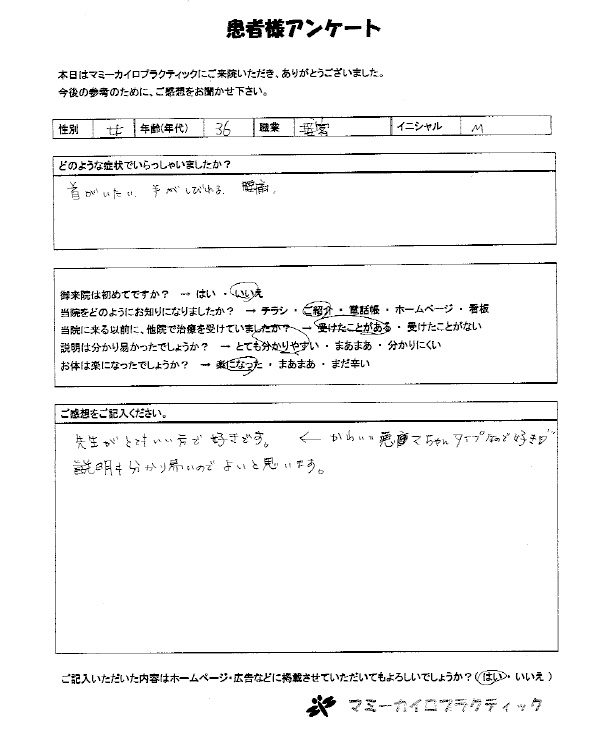 患者様アンケート
本日はマミーカイロプラクティックにご来院いただき、ありがとうございました。
今後の参考のために、ご感想をお聞かせ下さい。
性別 女 年齢(年代) 36 職業 イニシャル M
どのような症状でいらっしゃいましたか？
首がいたい、手がしびれる、腰痛、
御来院は初めてですか？ → はい ・ いいえ
当院をどのようにお知りになりましたか？ → チラシ ・ ご紹介 ・ 電話帳 ・ ホームページ ・ 看板
当院に来る以前に、他院で治療を受けていましたか？ → 受けたことがある ・ 受けたことがない
説明は分かり易かったでしょうか？ → とても分かりやすい ・ まあまあ ・ 分かりにくい
お体は楽になったでしょうか？ → 楽になった ・ まあまあ ・ まだ辛い
ご感想をご記入ください。
先生がとてもいい方で好きです。 ← かわいい悪魔マちゃんタイプなので好きです
説明も分かり易いのでよいと思います。
ご記入いただいた内容はホームページ・広告などに掲載させていただいてもよろしいでしょうか？( はい ・ いいえ )
マミーカイロプラクティック